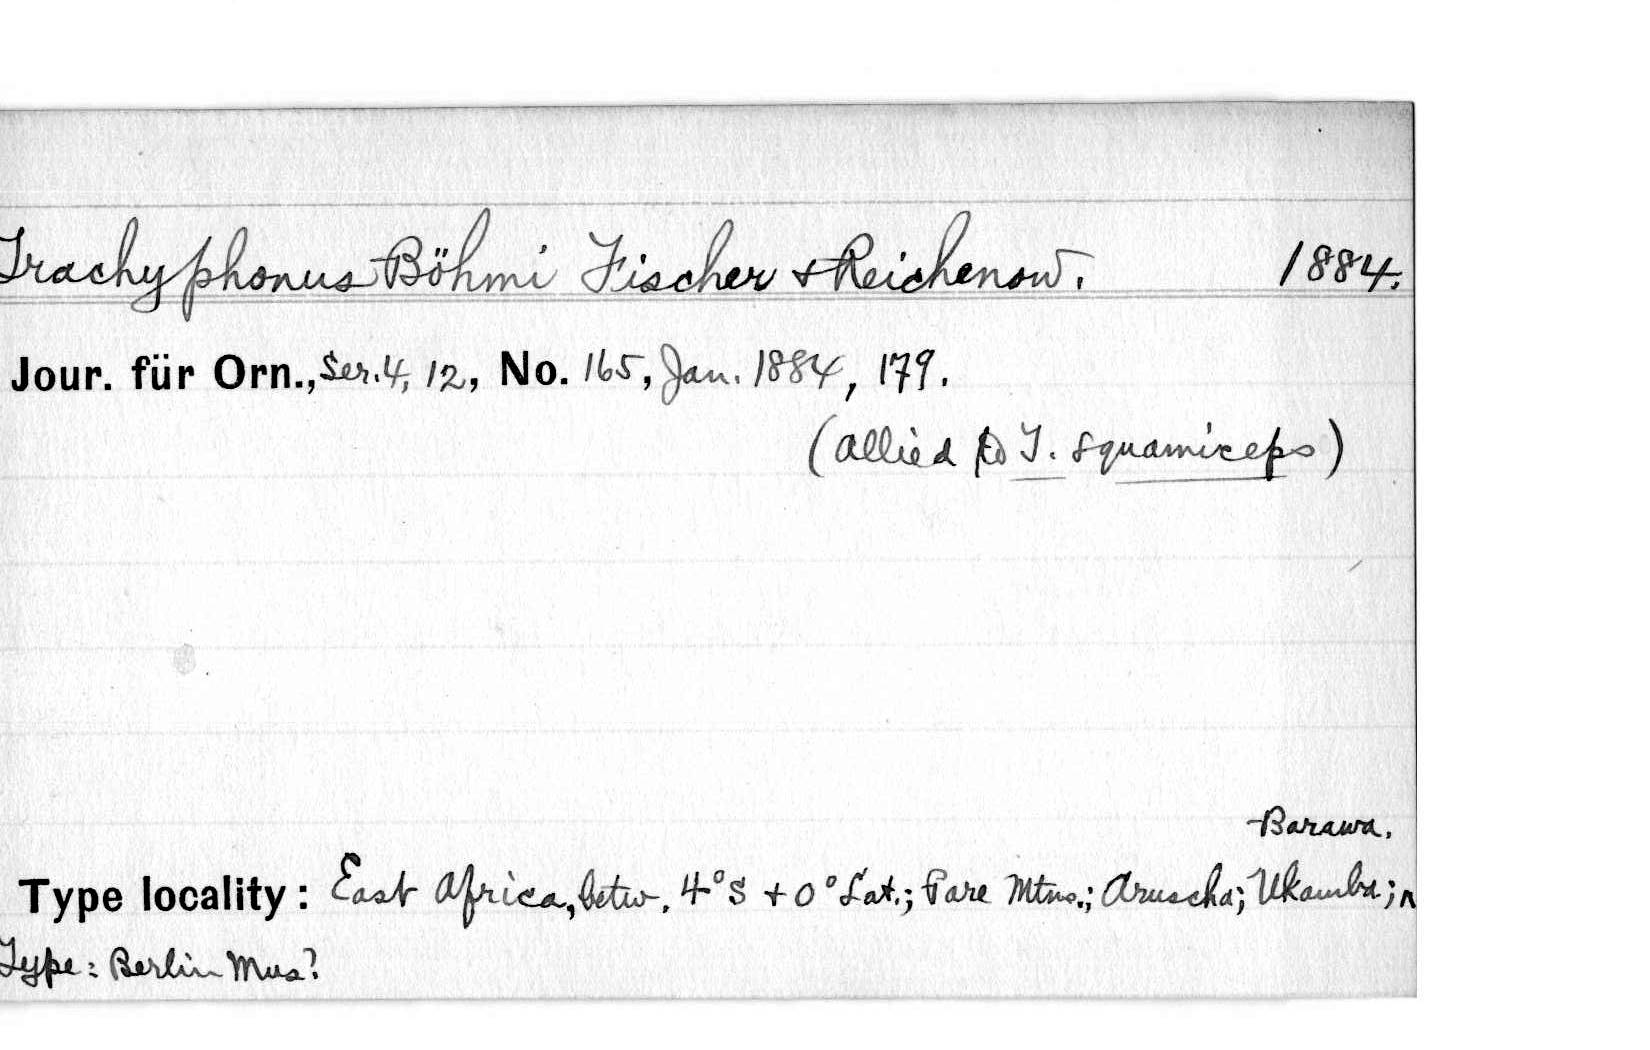 Trachyphonus Böhmi Fischer & Reichenow. 1884.
Jour. für Orn., Ser. 4, 12, No. 165, Jan. 1884, 179.
(allied to T. squamiceps)
Barawa.
Type locality: East Africa, betw. 4°S + 0° Lat.; Pare Mtns.; Aruscha; Ukamba; ^
Type: Berlin Mus?